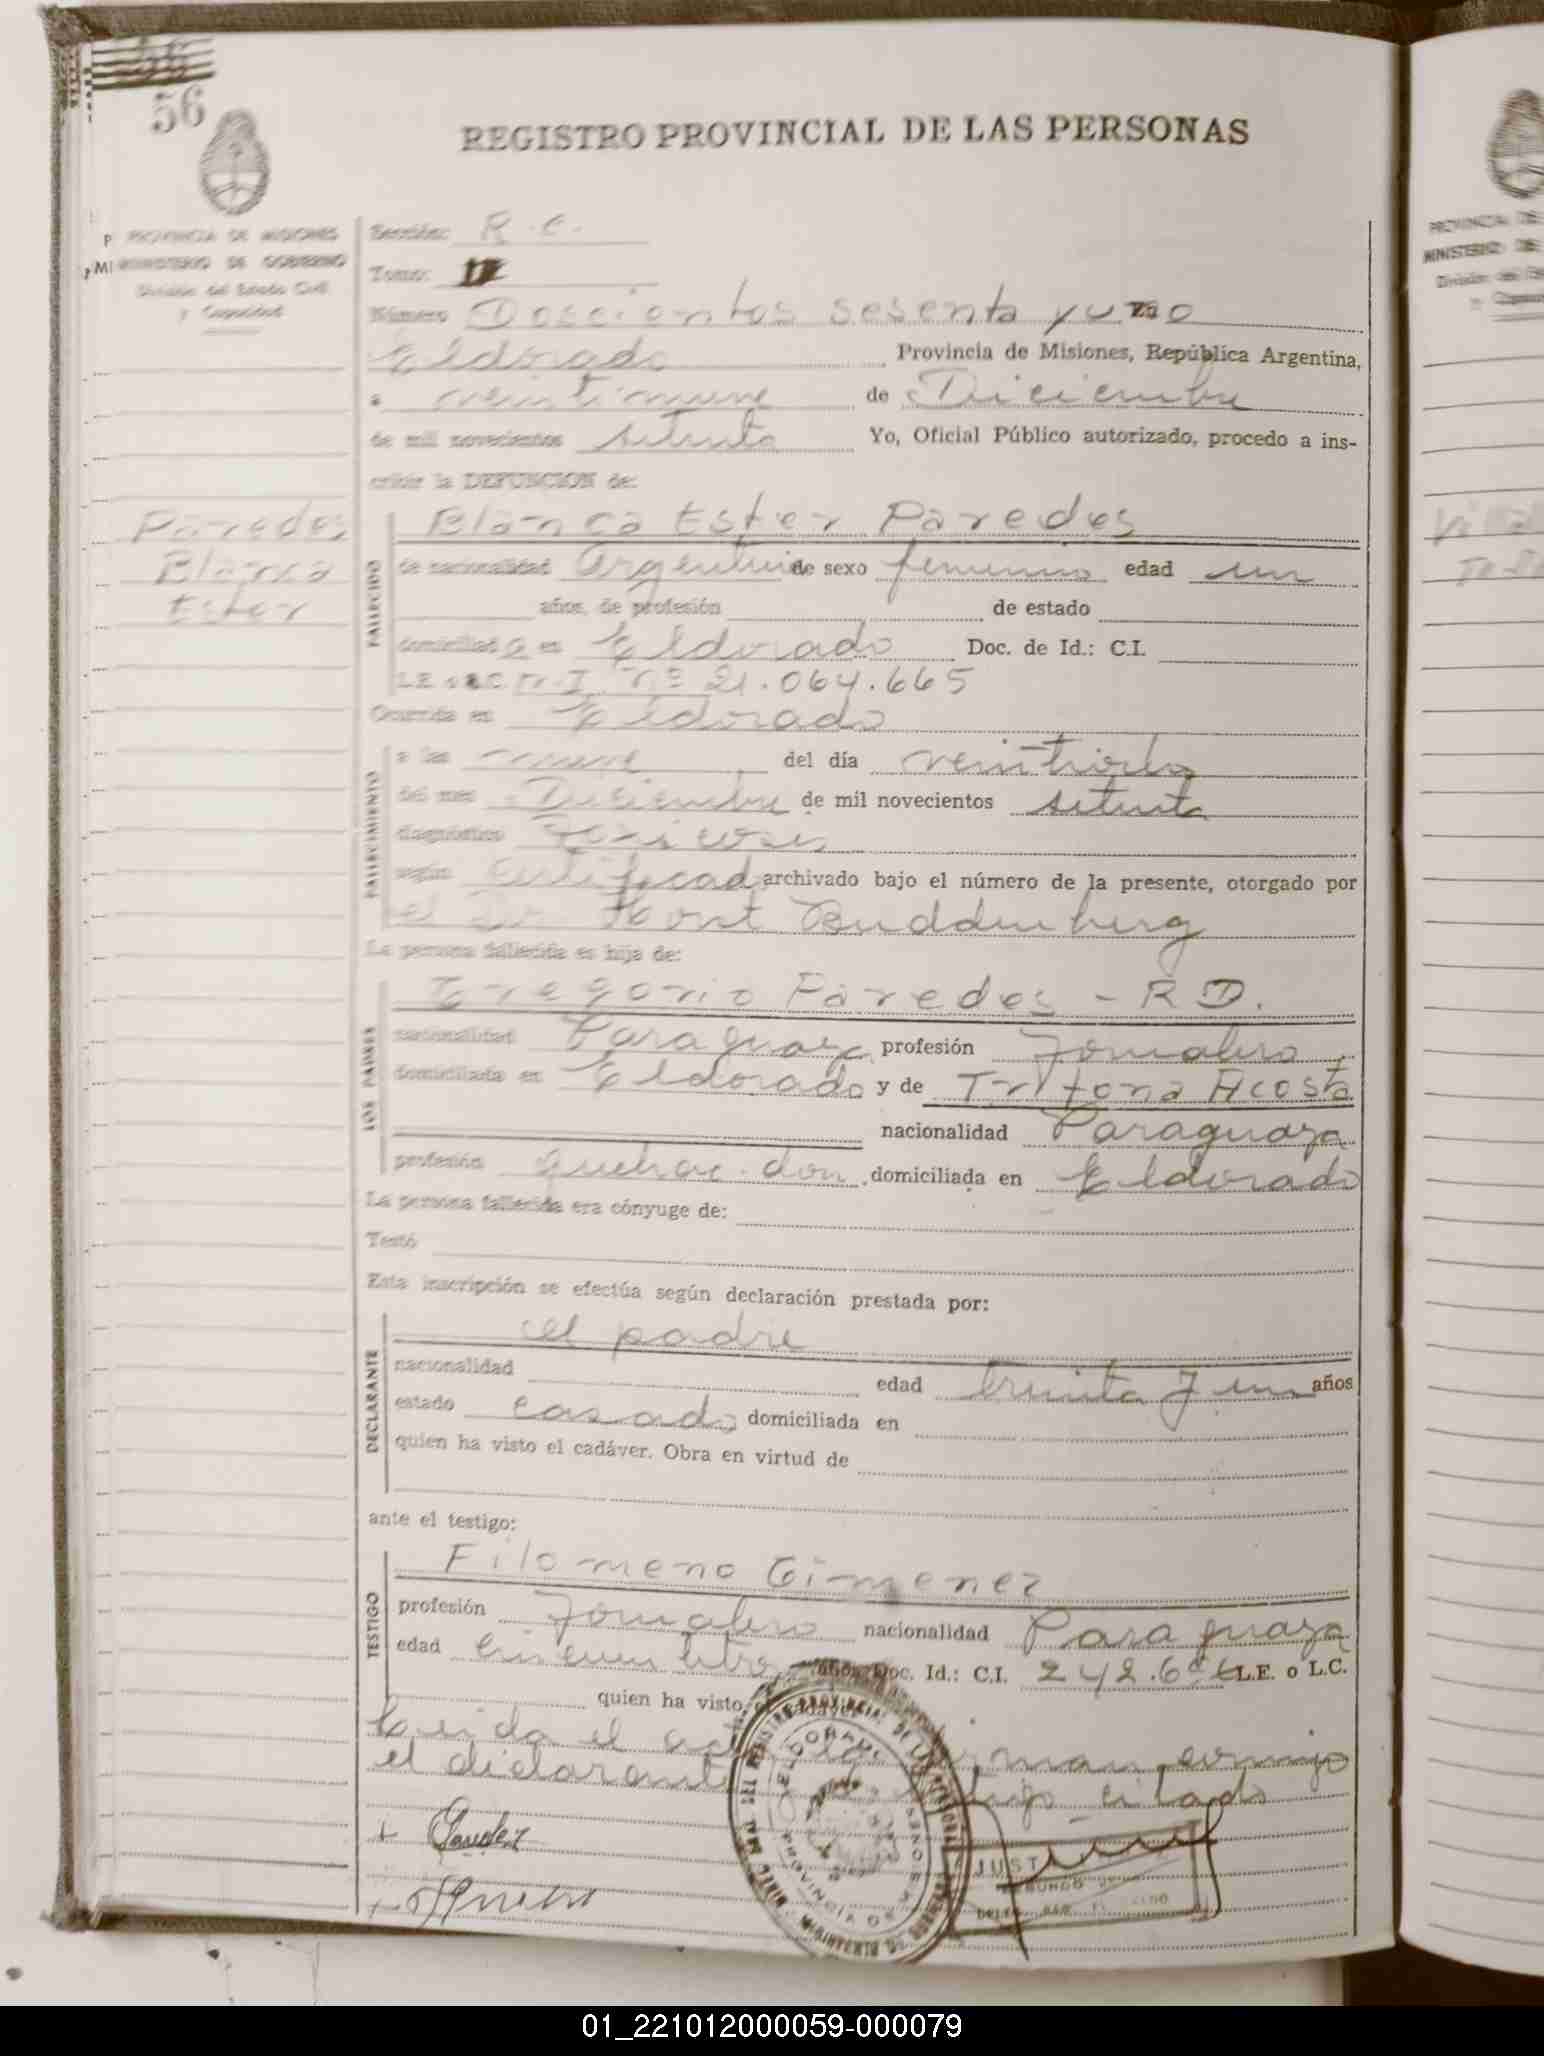 56
REGISTRO PROVINCIAL DE LAS PERSONAS
PROVINCIA DE MISIONES
MINISTERIO DE GOBIERNO
División del Estado Civil
y Capacidad
Sección: R. C.
Tomo: II
Número Doscientos sesenta y uno
Eldorado Provincia de Misiones, República Argentina,
a veintinueve de Diciembre
de mil novecientos setenta Yo, Oficial Público autorizado, procedo a ins-
cribir la DEFUNCION de:
Paredes
Blanca
Ester
FALLECIDO
Blanca Ester Paredes
de nacionalidad Argentina de sexo femenino edad un
años, de profesión de estado
domiciliada en Eldorado Doc. de Id.: C.I.
Nº 21.064.665
Ocurrida en Eldorado
FALLECIMIENTO
a las nueve del día veintiocho
del mes Diciembre de mil novecientos setenta
diagnóstico Toxicosis
según Certificado archivado bajo el número de la presente, otorgado por
el Dr. Horst Buddenberg
La persona fallecida es hija de:
LOS PADRES
Gregorio Paredes - R D.
nacionalidad Paraguaya profesión Jornalero
domiciliada en Eldorado y de Trifona Acosta
nacionalidad Paraguaya
profesión Quehac. dom. domiciliada en Eldorado
La persona fallecida era cónyuge de:
Testó
Esta inscripción se efectúa según declaración prestada por:
DECLARANTE
el padre
nacionalidad edad treinta y un años
estado casado domiciliada en
quien ha visto el cadáver. Obra en virtud de
ante el testigo:
TESTIGO
Filomeno Gimenez
profesión Jornalero nacionalidad Paraguaya
edad años Doc. Id.: C.I. L.E. o L.C.
quien ha visto el cadáver
Leida el acta la firman conmigo
el declarante testigo citado
ELDORADO
PROVINCIA DE MISIONES
01_221012000059-000079